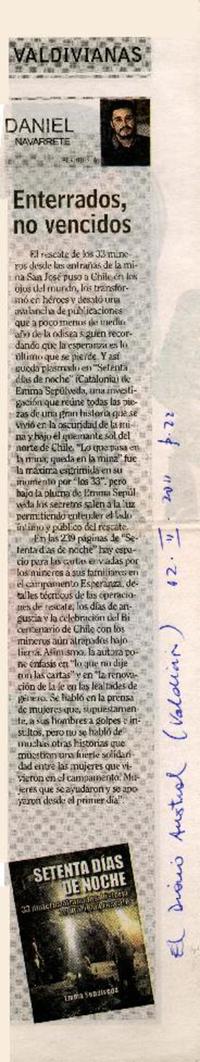 VALDIVIANAS
DANIEL
NAVARRETE
Enterrados,
no vencidos
El rescate de los 33 mine-
ros desde las entrañas de la mi-
na San José puso a Chile en los
ojos del mundo, los transfor-
mó en héroes y desató una
avalancha de publicaciones
que a poco menos de medio
año de la odisea siguen recor-
dando que la esperanza es lo
último que se pierde. Y así
queda plasmado en "Setenta
días de noche" (Catalonia) de
Emma Sepúlveda, una investi-
gación que reúne todas las pie-
zas de una gran historia que se
vivió en la oscuridad de la mi-
na y bajo el quemante sol del
norte de Chile. "Lo que pasa en
la mina, queda en la mina" fue
la máxima esgrimida en su
momento por "los 33", pero
bajo la pluma de Emma Sepúl-
veda los secretos salen a la luz
permitiendo entender el lado
íntimo y público del rescate.
En las 239 páginas de "Se-
tenta días de noche" hay espa-
cio para las cartas enviadas por
los mineros a sus familiares en
el campamento Esperanza, de-
talles técnicos de las operacio-
nes de rescate, los días de an-
gustia y la celebración del Bi-
centenario de Chile con los
mineros aún atrapados bajo
tierra. Asimismo, la autora po-
ne énfasis en "lo que no dije-
ron las cartas" y en "la renova-
ción de la fe en las lealtades de
género. Se habló en la prensa
de mujeres que, supuestamen-
te, a sus hombres a golpes e in-
sultos, pero no se habló de
muchas otras historias que
muestran una fuerte solidari-
dad entre las mujeres que vi-
vieron en el campamento. Mu-
jeres que se ayudaron y se apo-
yaron desde el primer día".
SETENTA DÍAS
DE NOCHE
Emma Sepúlveda
El Diario Austral (Valdivia) 12. II. 2011 p. 22